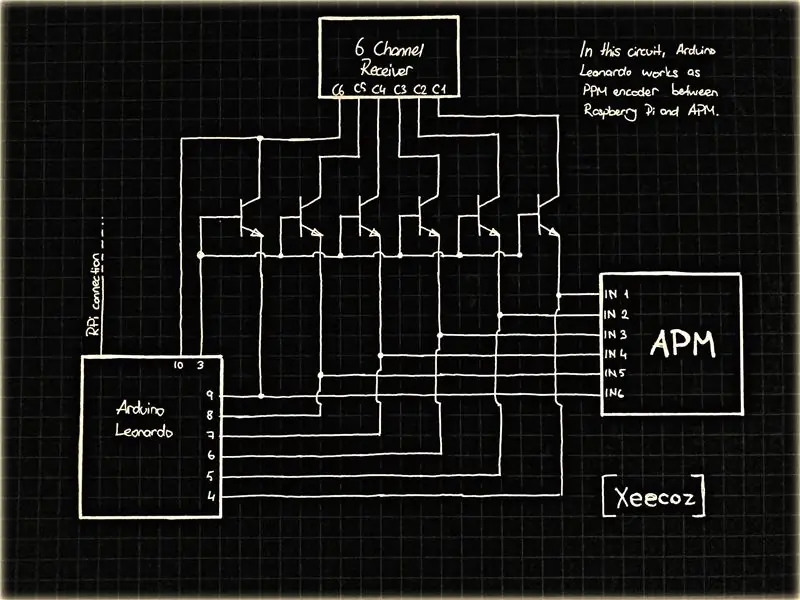 6 Channel
Receiver
C6 C5 C4 C3 C2 C1
In this circuit, Arduino
Leonardo works as
PPM encoder between
Raspberry Pi and APM.
RPi connection
IN 1
IN 2
IN 3
IN 4
IN 5
IN6
APM
10 3
Arduino
Leonardo
9
8
7
6
5
4
[Xeecoz]